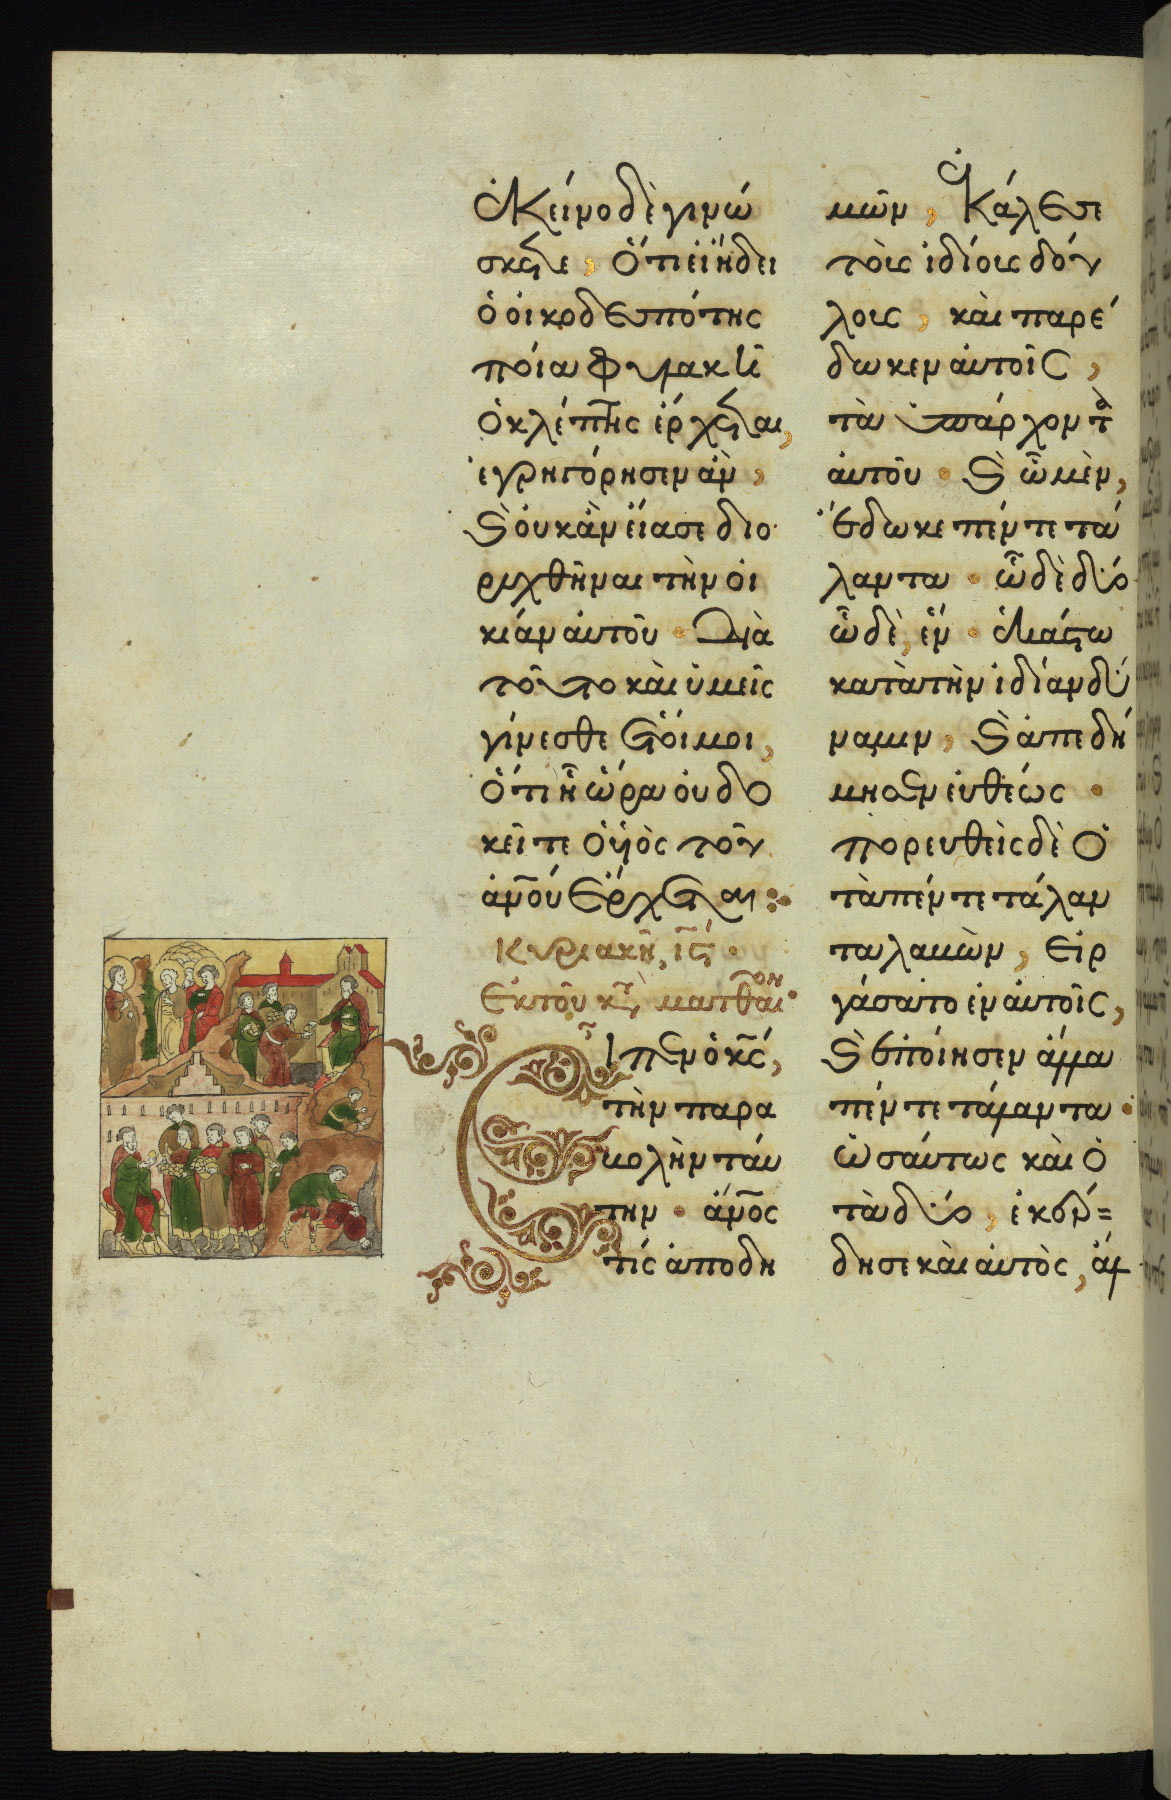 ἐκεῖνο δὲ γινώ
σκετε, ὅτι εἰ ἤδει
ὁ οἰκοδεσπότης
ποία φυλακῆ
ὁ κλέπτης ἔρχεται,
ἐγρηγόρησεν ἂν,
καὶ οὐκ ἂν εἴασε διο
ρυχθῆναι τὴν οἰ
κίαν αὐτοῦ. Διὰ
τοῦτο καὶ ὑμεῖς
γίνεσθε ἕτοιμοι,
ὅτι ἧ ὥρα οὐ δο
κεῖτε ὁ υἱὸς τοῦ
ἀνου ἔρχεται:
Κυριακῆ ιϛ.
Ἐκ τοῦ κατὰ ματθαῖον
Εἶπεν ὁ κς,
τὴν παρα
βολὴν ταύ
την. ἄνος
τίς ἀποδη
μῶν, ἐκάλεσε
τοὺς ἰδίους δού
λους, καὶ παρέ
δωκεν αὐτοῖς,
τὰ ὑπάρχοντα
αὐτοῦ. καὶ ὧ μὲν,
ἔδωκε πέντε τά
λαντα. ὧ δὲ δύο
ὧ δὲ, ἕν. ἑκάστω
κατὰ τὴν ἰδίαν δύ
ναμιν, καὶ ἀπεδή
μησεν εὐθέως.
πορευθεὶς δὲ ὁ
τὰ πέντε τάλαν
τα λαβὼν, εἰρ
γάσατο ἐν αὐτοῖς,
καὶ ἐποίησεν ἄλλα
πέντε τάλαντα.
ὡσαύτως καὶ ὁ
τὰ δύο, ἐκέρ=
δησε καὶ αὐτὸς, ἄλ